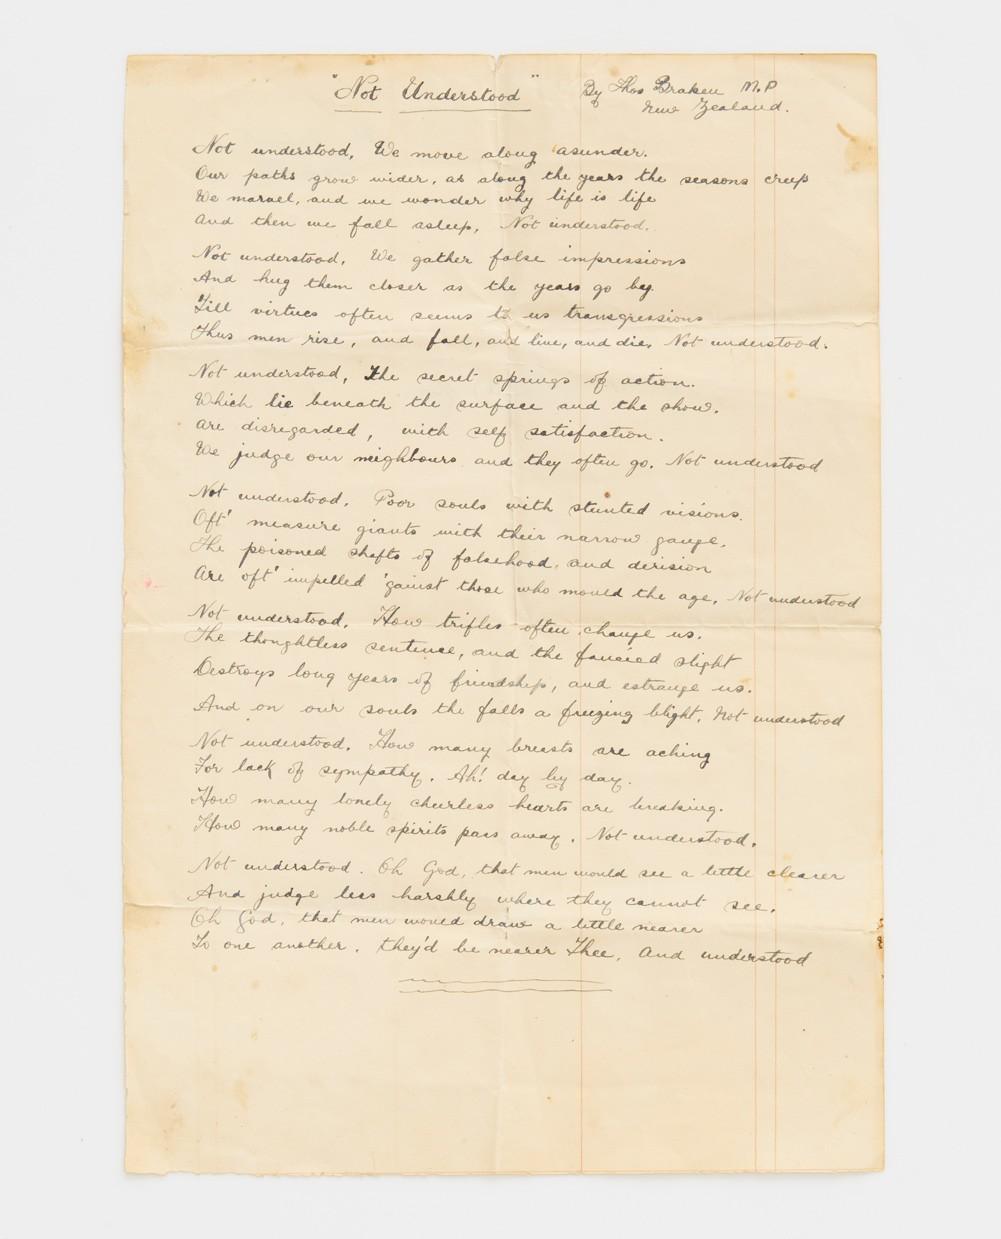 "Not Understood" By Thos Braken M.P
New Zealand.
Not understood, We move along asunder.
Our paths grow wider, as along the years the seasons creep
We marvel, and we wonder why life is life
And then we fall asleep, Not understood.
Not understood, We gather false impressions
And hug them closer as the years go by.
Till virtues often seems to us transgressions
Thus men rise, and fall, and live, and die, Not understood.
Not understood, The secret springs of action.
Which lie beneath the surface and the show.
Are disregarded, with self satisfaction.
We judge our neighbours and they often go. Not understood
Not understood. Poor souls with stunted visions.
Oft' measure giants with their narrow gauge.
The poisoned shafts of falsehood, and derision
Are oft' impelled 'gainst those who mould the age, Not understood
Not understood. How trifles often change us.
The thoughtless sentence, and the fancied slight
Destroys long years of friendship, and estrange us.
And on our souls the falls a freezing blight, Not understood
Not understood. How many breasts are aching
For lack of sympathy. Ah! day by day.
How many lonely cheerless hearts are breaking.
How many noble spirits pass away. Not understood.
Not understood. Oh God, that men would see a little clearer
And judge less harshly where they cannot see.
Oh God, that men would draw a little nearer
To one another. they'd be nearer Thee, And understood